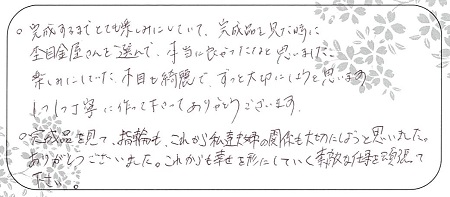 。完成するまでとても楽しみにしていて、完成品を見た時に
杢目金屋さんを選んで、本当に良かったなと思いました。
楽しみにしていた木目も綺麗で、ずっと大切にしようと思います
1つ1つ丁寧に作って下さってありがとうございます。
。完成品を見て、指輪も、これから私達夫婦の関係も大切にしようと思いました。
ありがとうございました。これからも幸せを形にしていく素敵な仕事を頑張って
下さい。